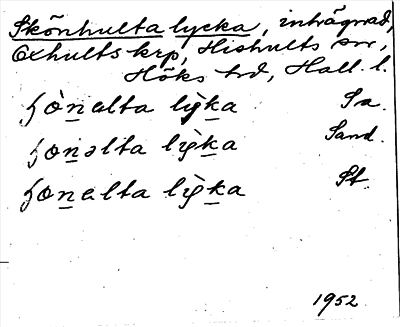 Skönhulta lycka, inhägnad,
Oxhults krp, Hishults sn,
Höks hd, Hall. l.
ʃònalta lỳka Sa.
ʃonəlta lỳka Sand.
ʃonalta lỳka St.
1952